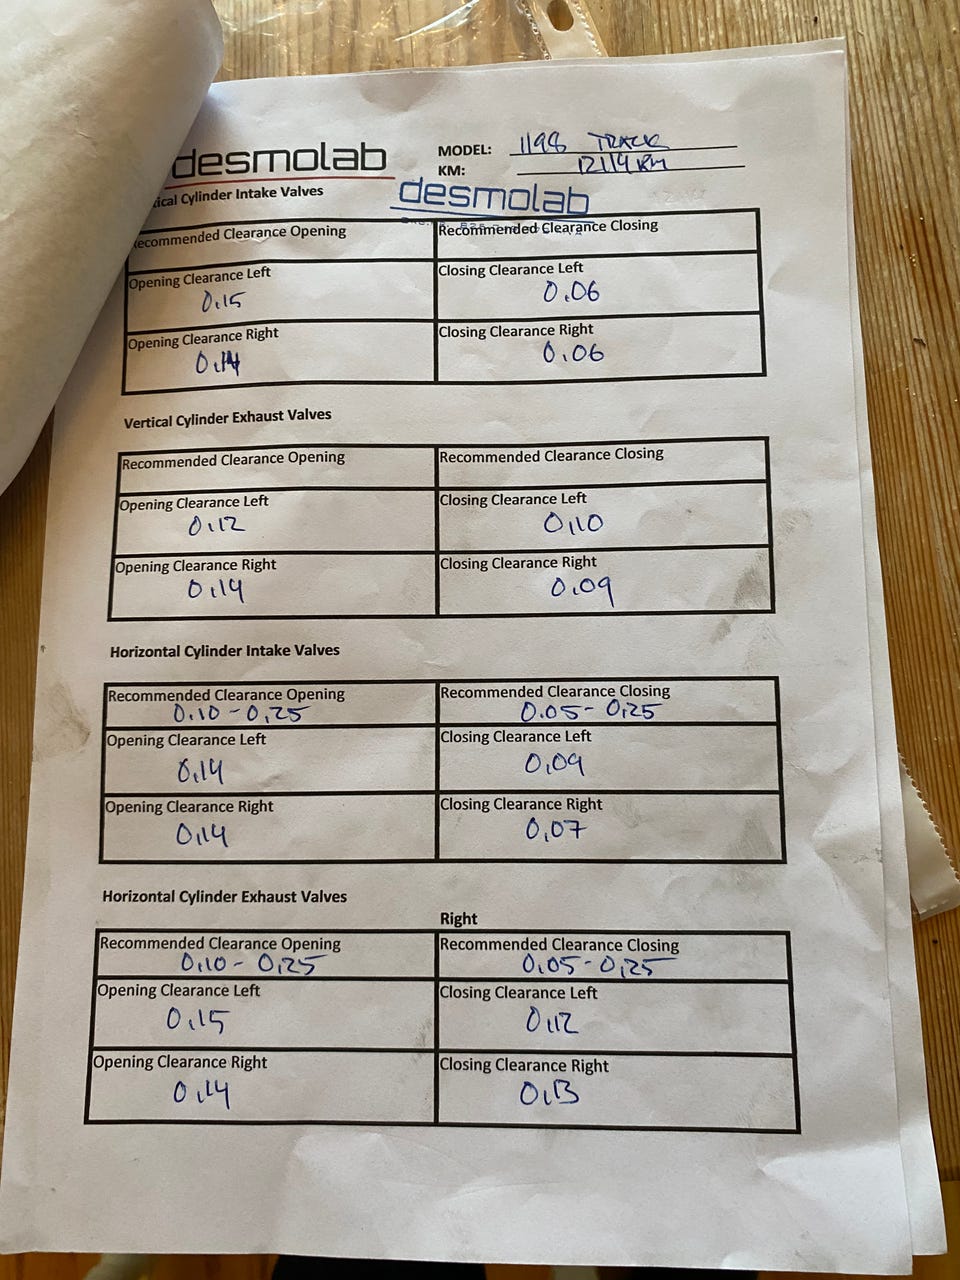 desmolab
MODEL: 1198 TRACK
KM: 12114 KM
desmolab
ical Cylinder Intake Valves
ecommended Clearance Opening Recommended Clearance Closing
Opening Clearance Left Closing Clearance Left
0.15 0.06
Opening Clearance Right Closing Clearance Right
0.14 0.06
Vertical Cylinder Exhaust Valves
Recommended Clearance Opening Recommended Clearance Closing
Opening Clearance Left Closing Clearance Left
0,12 0,10
Opening Clearance Right Closing Clearance Right
0.14 0.09
Horizontal Cylinder Intake Valves
Recommended Clearance Opening Recommended Clearance Closing
0.10 - 0,25 0.05 - 0,25
Opening Clearance Left Closing Clearance Left
0,14 0,09
Opening Clearance Right Closing Clearance Right
0,14 0,07
Horizontal Cylinder Exhaust Valves
Right
Recommended Clearance Opening Recommended Clearance Closing
0,10 - 0,25 0,05 - 0,25
Opening Clearance Left Closing Clearance Left
0.15 0,12
Opening Clearance Right Closing Clearance Right
0.14 0,13